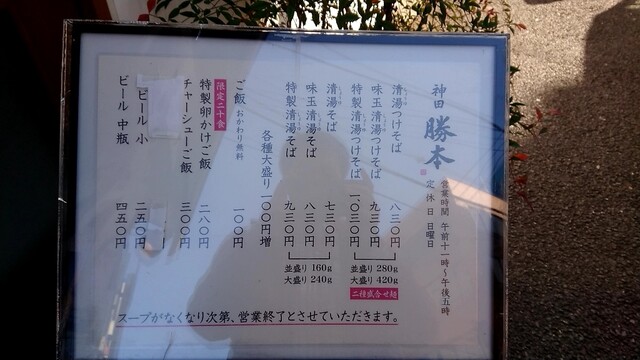 神田 勝本
営業時間 午前十一時～午後五時
定休日 日曜日
清湯つけそば 八三〇円
味玉清湯つけそば 九三〇円
特製清湯つけそば 一、〇三〇円
並盛り 280g
大盛り 420g
二種盛合せ麺
清湯そば 七三〇円
味玉清湯そば 八三〇円
特製清湯そば 九三〇円
並盛り 160g
大盛り 240g
各種大盛り 一〇〇円増
ご飯 おかわり無料 一〇〇円
限定二十食
特製卵かけご飯 二八〇円
チャーシューご飯 三〇〇円
ビール 小 二五〇円
ビール 中瓶 四五〇円
スープがなくなり次第、営業終了とさせていただきます。